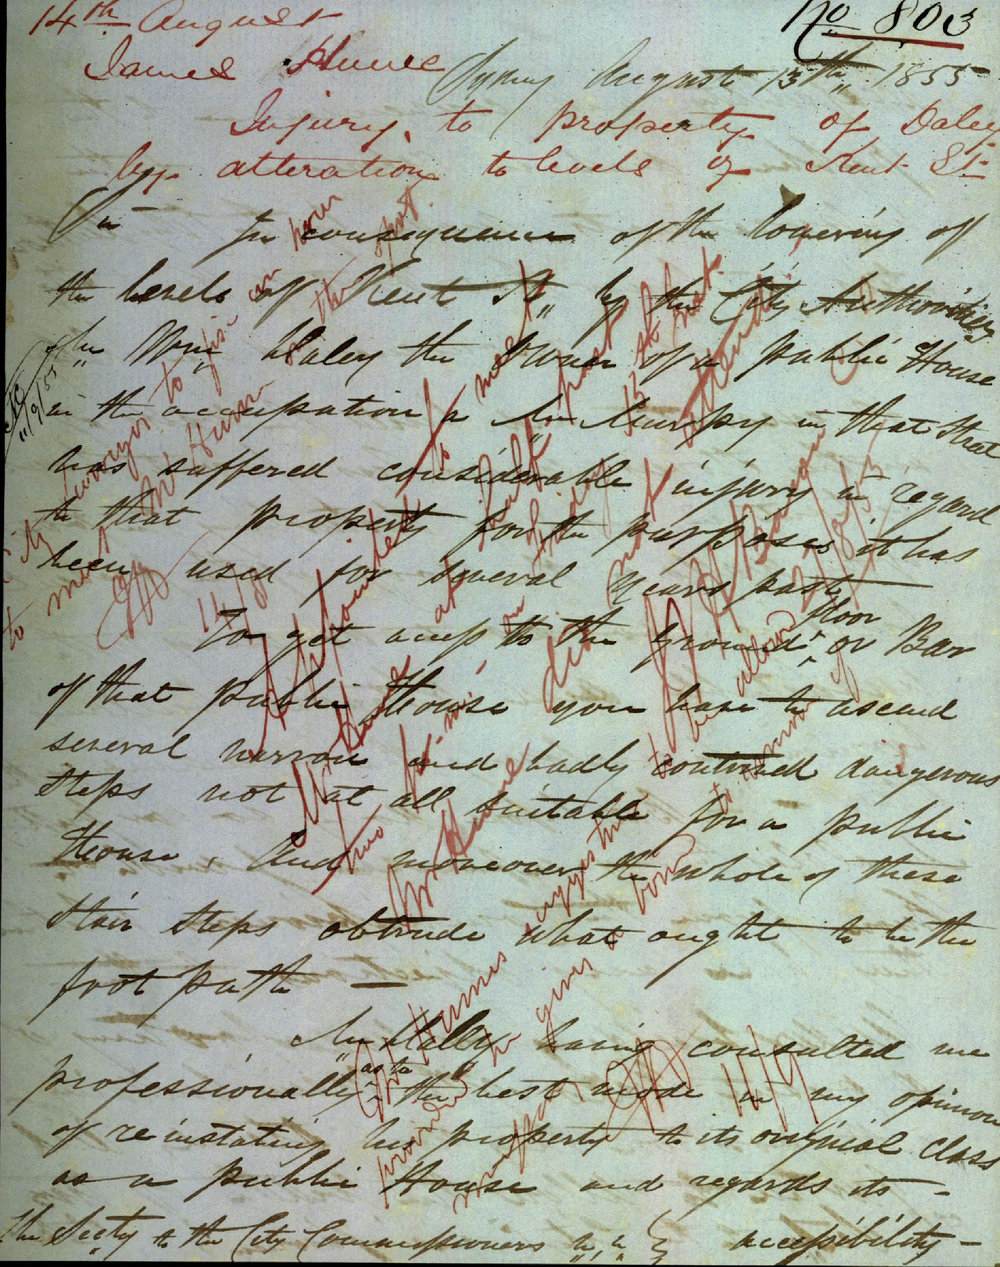 14th August
No 803
James Hume
Sydney August 13th 1855
Injury to property of Daley
by alteration to levels of Kent St
Sir In consequence of the lowering of
the levels of Kent St, by the City Authorities
Mr Wm Daley the Owner of a public House
in the occupation of a Mr Murpy in that Street
has suffered considerable injury in regard
to that property for the purposes it has
been used for several years past,
To get access to the ground floor or Bar
of that public House you have to ascend
several narrow and badly contrived dangerous
steps not at all suitable for a public
House, And moreover the whole of these
stair steps obtrude what ought to be the
foot path —
Mr Daley having consulted me
professionally as to the best mode in my opinion
of reinstating his property to its original class
as a public House and regards its -
the Secty to the City Commissioners &c &c } accessibility -
City Surveyor to fix an hour
to meet Mr Hume on the spot.
14/8
to meet
Mr Hume at half past
two p.m. on Friday 17th
Mr Hume did not attend
17/8/55
Mr Humes suggestion to be allowed
provided he gives a bond to remove if
11/9
11/9/55